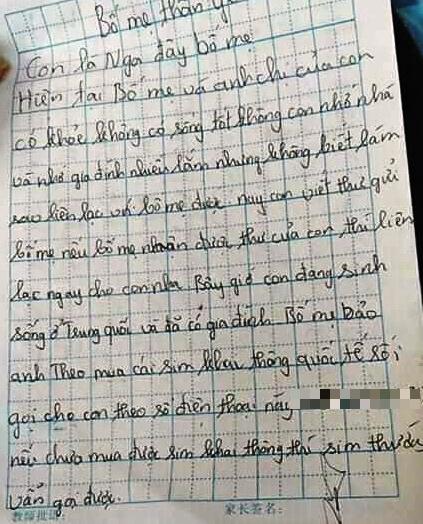 Bố mẹ thân y
Con là Nga đây bố mẹ
Hiện tại Bố mẹ và anh chị của con
có khỏe không có sống tốt không con nhớ nhà
và nhớ gia đình nhiều lắm nhưng không biết làm
sao liên lạc với bố mẹ được nay con viết thư gửi
bố mẹ nếu bố mẹ nhận được thư của con thì liên
lạc ngay cho con nha Bây giờ con đang sinh
sống ở Trung quốc và đã có gia đình Bố mẹ bảo
anh Theo mua cái sim khai thông quốc tế rồi
gọi cho con theo số điện thoại này
nếu chưa mua được sim khai thông thì sim thường
vẫn gọi được.
教师批语: 家长签名: